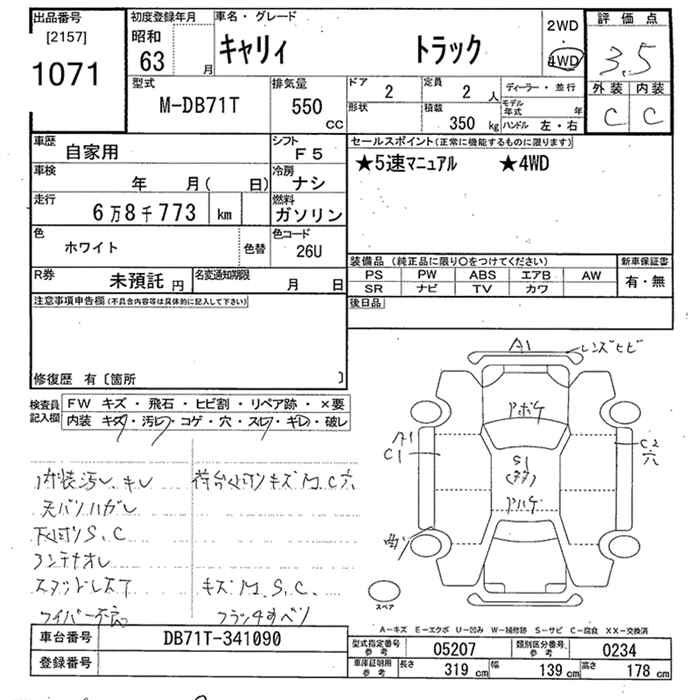 出品番号
[2157]
1071
初度登録年月
昭和
63
月
車名・グレード
キャリィ トラック
2WD
4WD
評価点
3.5
外装 内装
C C
型式
M-DB71T
排気量
550
cc
ドア
2
定員
2 人
ディーラー・並行
形状
積載
350 kg
モデル年式 年
ハンドル 左・右
車歴
自家用
シフト
F5
セールスポイント(正常に機能するものに限ります)
★5速マニュアル ★4WD
車検
年 月( 日)
冷房
ナシ
走行
6万8千773 km
燃料
ガソリン
色
ホワイト
色替
色コード
26U
装備品 (純正品に限り○をつけてください)
新車保証書
PS PW ABS エアB AW
有・無
SR ナビ TV カワ
R券
未預託 円
名変通知期限
月 日
後日品
注意事項申告欄(不具合内容等は具体的に記入して下さい)
修復歴 有〔箇所 〕
検査員記入欄
FW キズ・飛石・ヒビ割・リペア跡・×要
内装 キズ・汚レ・コゲ・穴・スレ・キレ・破レ
A1
レンズヒビ
アボケ
A1
C1
S1
C2
穴
アハゲ
曲り
内装汚レ、キレ
天バリハガレ
下回りS、C
アンテナオレ
スタッドレスT
ワイパー不良
荷台内回リキズM、C穴
キズM、S、C、
フラッチすべり
スペア
A-キズ E-エクボ U-凹み W-補修跡 S-サビ C-腐食 XX-交換済
車台番号
DB71T-341090
登録番号
型式指定番号参考
05207
類別区分番号参考
0234
車庫証明用参考
長さ 319 cm 幅 139 cm 高さ 178 cm